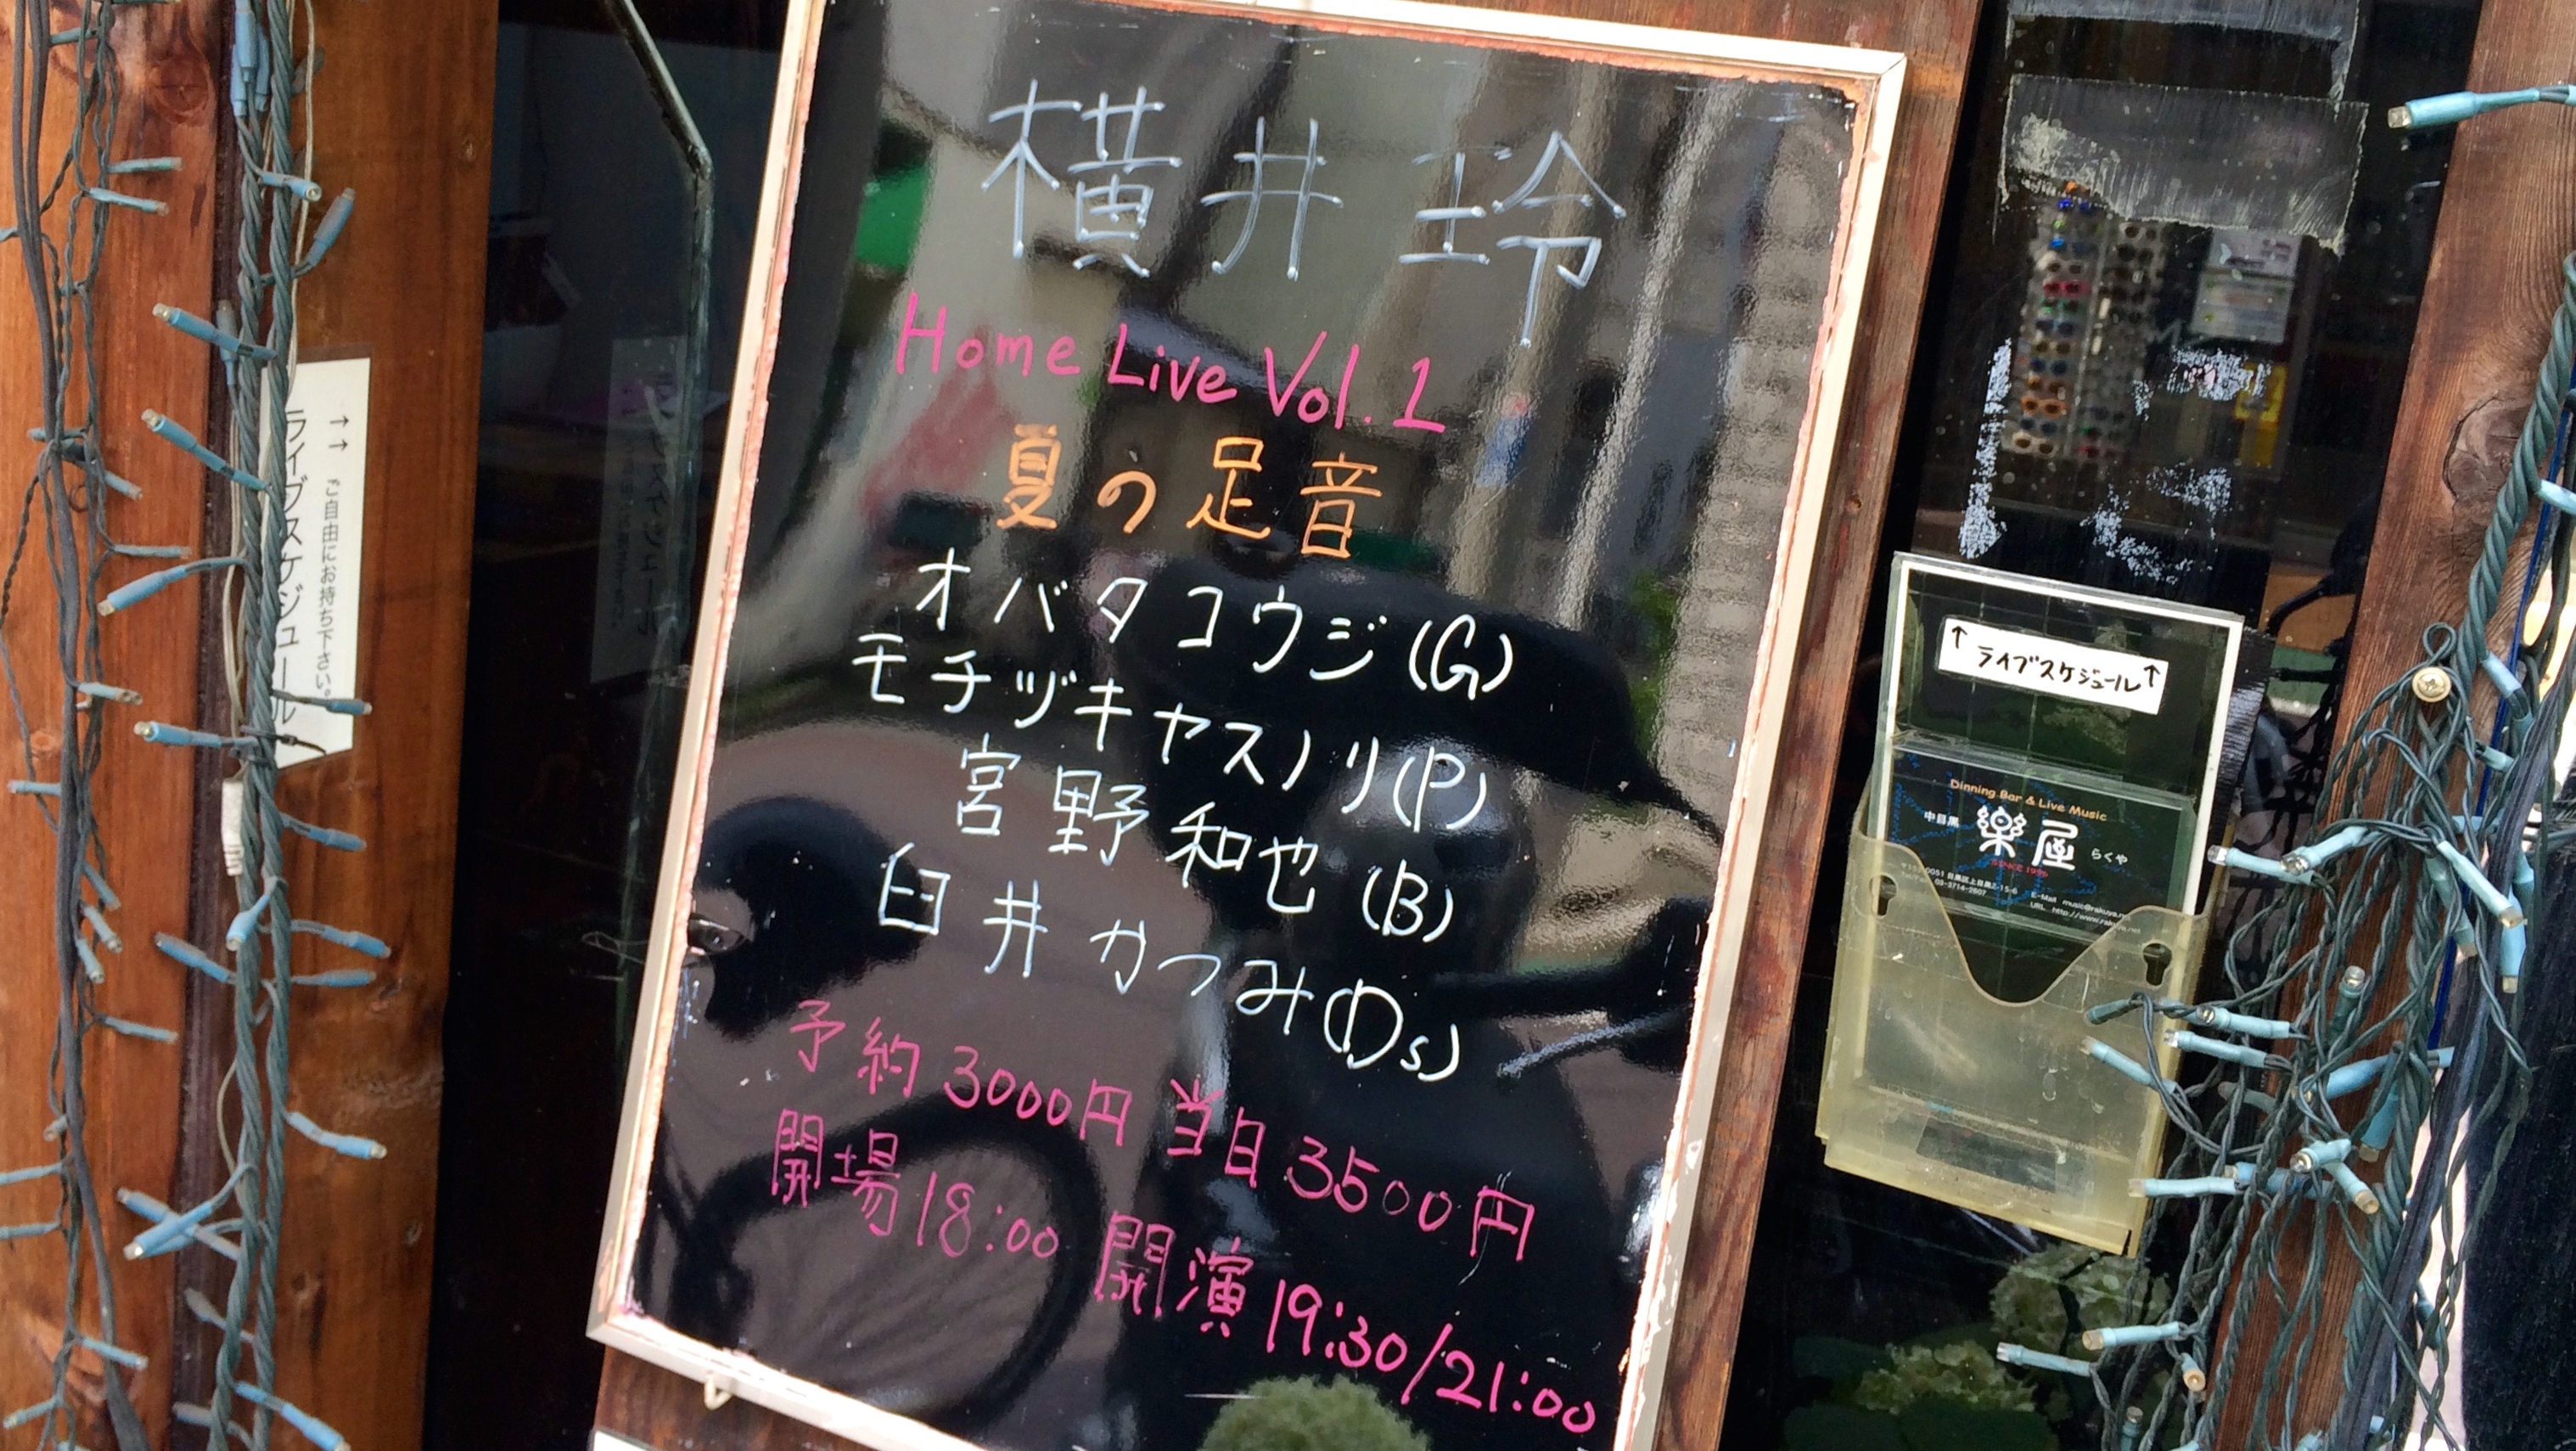 横井玲
Home Live Vol.1
夏の足音
オバタコウジ(G)
モチヅキヤスノリ(P)
宮野和也(B)
臼井かつみ(Ds)
予約3000円 当日3500円
開場18:00 開演19:30/21:00
→→ ご自由にお持ち下さい。
ライブスケジュール
↑ライブスケジュール↑
Dinning Bar & Live Music
中目黒 楽屋 らくや
SINCE 1996
0051 目黒区上目黒2-15-6
03-3714-2607
E-Mail music@rakuya.
URL http://www.rakuya.net